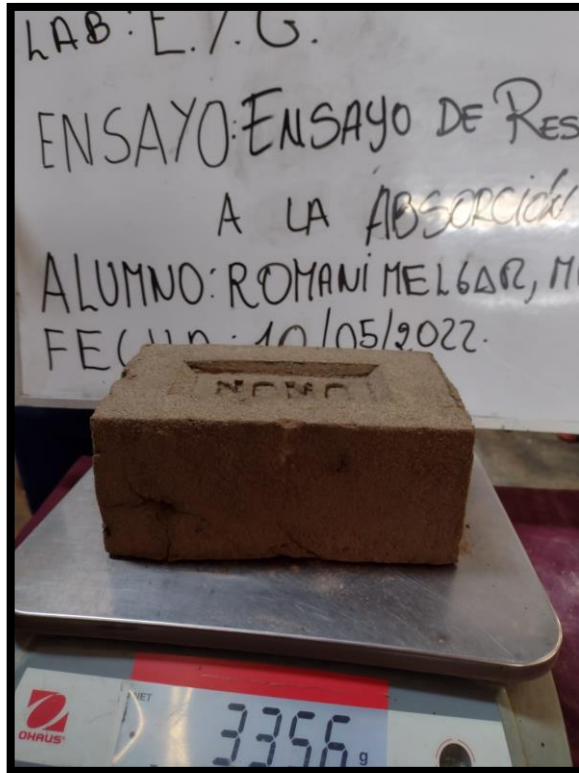 LAB: E.I.G.
ENSAYO: ENSAYO DE RES
A LA ABSORCIÓN
ALUMNO: ROMANI MELGAR, M
FECHA: 10/05/2022.
NET
3356 g
OHAUS